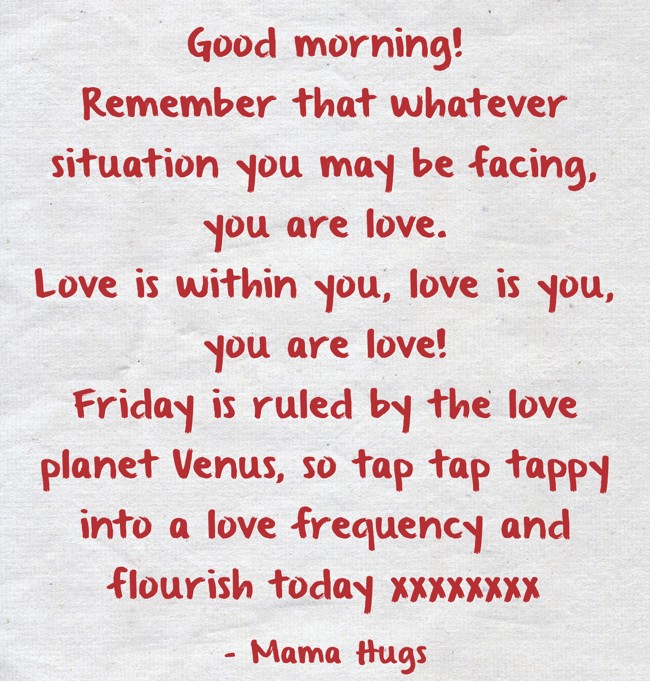 Good morning!
Remember that whatever
situation you may be facing,
you are love.
Love is within you, love is you,
you are love!
Friday is ruled by the love
planet Venus, so tap tap tappy
into a love frequency and
flourish today xxxxxxxx
- Mama Hugs